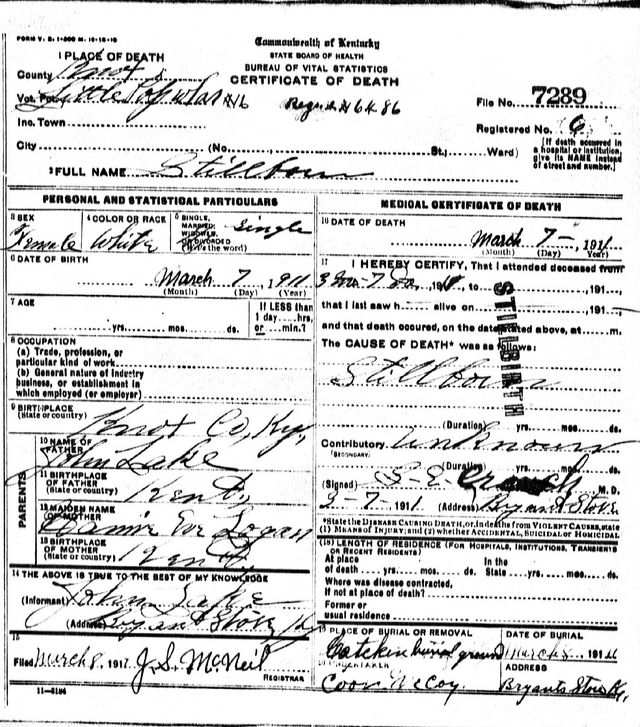 FORM V. S. 1-200 M. 10-16-10
Commonwealth of Kentucky
STATE BOARD OF HEALTH
BUREAU OF VITAL STATISTICS
CERTIFICATE OF DEATH
1 PLACE OF DEATH
County Knox
Vot. Pct. Little Poplar
File No. 7289
Inc. Town
Registered No. 6
City (No. St.; Ward)
(If death occurred in a hospital or institution, give its NAME instead of street and number.)
2 FULL NAME Stillborn
PERSONAL AND STATISTICAL PARTICULARS
3 SEX
Female
4 COLOR OR RACE
White
5 SINGLE, MARRIED, WIDOWED, OR DIVORCED
(Write the word)
Single
6 DATE OF BIRTH
March 7, 1911
(Month) (Day) (Year)
7 AGE
yrs. mos. ds.
If LESS than 1 day....hrs. or....min.?
8 OCCUPATION
(a) Trade, profession, or particular kind of work
(b) General nature of Industry business, or establishment in which employed (or employer)
9 BIRTHPLACE
(State or country)
Knox Co, Ky,
PARENTS
10 NAME OF FATHER
John Lake
11 BIRTHPLACE OF FATHER
(State or country)
12 MAIDEN NAME OF MOTHER
Eve Logan
13 BIRTHPLACE OF MOTHER
(State or country)
14 THE ABOVE IS TRUE TO THE BEST OF MY KNOWLEDGE
(Informant) John Lake
(Address) Bryant Store Ky
15
Filed March 8, 1917 J. S. McNeil
REGISTRAR
11-3184
MEDICAL CERTIFICATE OF DEATH
16 DATE OF DEATH
March 7 - 1911
(Month) (Day) (Year)
17 I HEREBY CERTIFY, That I attended deceased from
191 , to 191 ,
that I last saw h alive on 191 ,
and that death occured, on the date stated above, at m.
The CAUSE OF DEATH* was as follows:
STILLBIRTH
Stillborn
(Duration) yrs. mos. ds.
Contributory Unknown
(SECONDARY)
(Duration) yrs. mos. ds.
(Signed) S. E. M. D.
3-7-1911 (Address) Bryant Store
*State the DISEASE CAUSING DEATH, or, in deaths from VIOLENT CAUSES, state (1) MEANS OF INJURY; and (2) whether ACCIDENTAL, SUICIDAL or HOMICIDAL
(18) LENGTH OF RESIDENCE (FOR HOSPITALS, INSTITUTIONS, TRANSIENTS OR RECENT RESIDENTS)
At place of death yrs. mos. ds. In the State yrs. mos. ds.
Where was disease contracted, If not at place of death?
Former or usual residence
19 PLACE OF BURIAL OR REMOVAL
burial ground
DATE OF BURIAL
March 8, 1911
20 UNDERTAKER
Coon McCoy
ADDRESS
Bryants Store Ky,